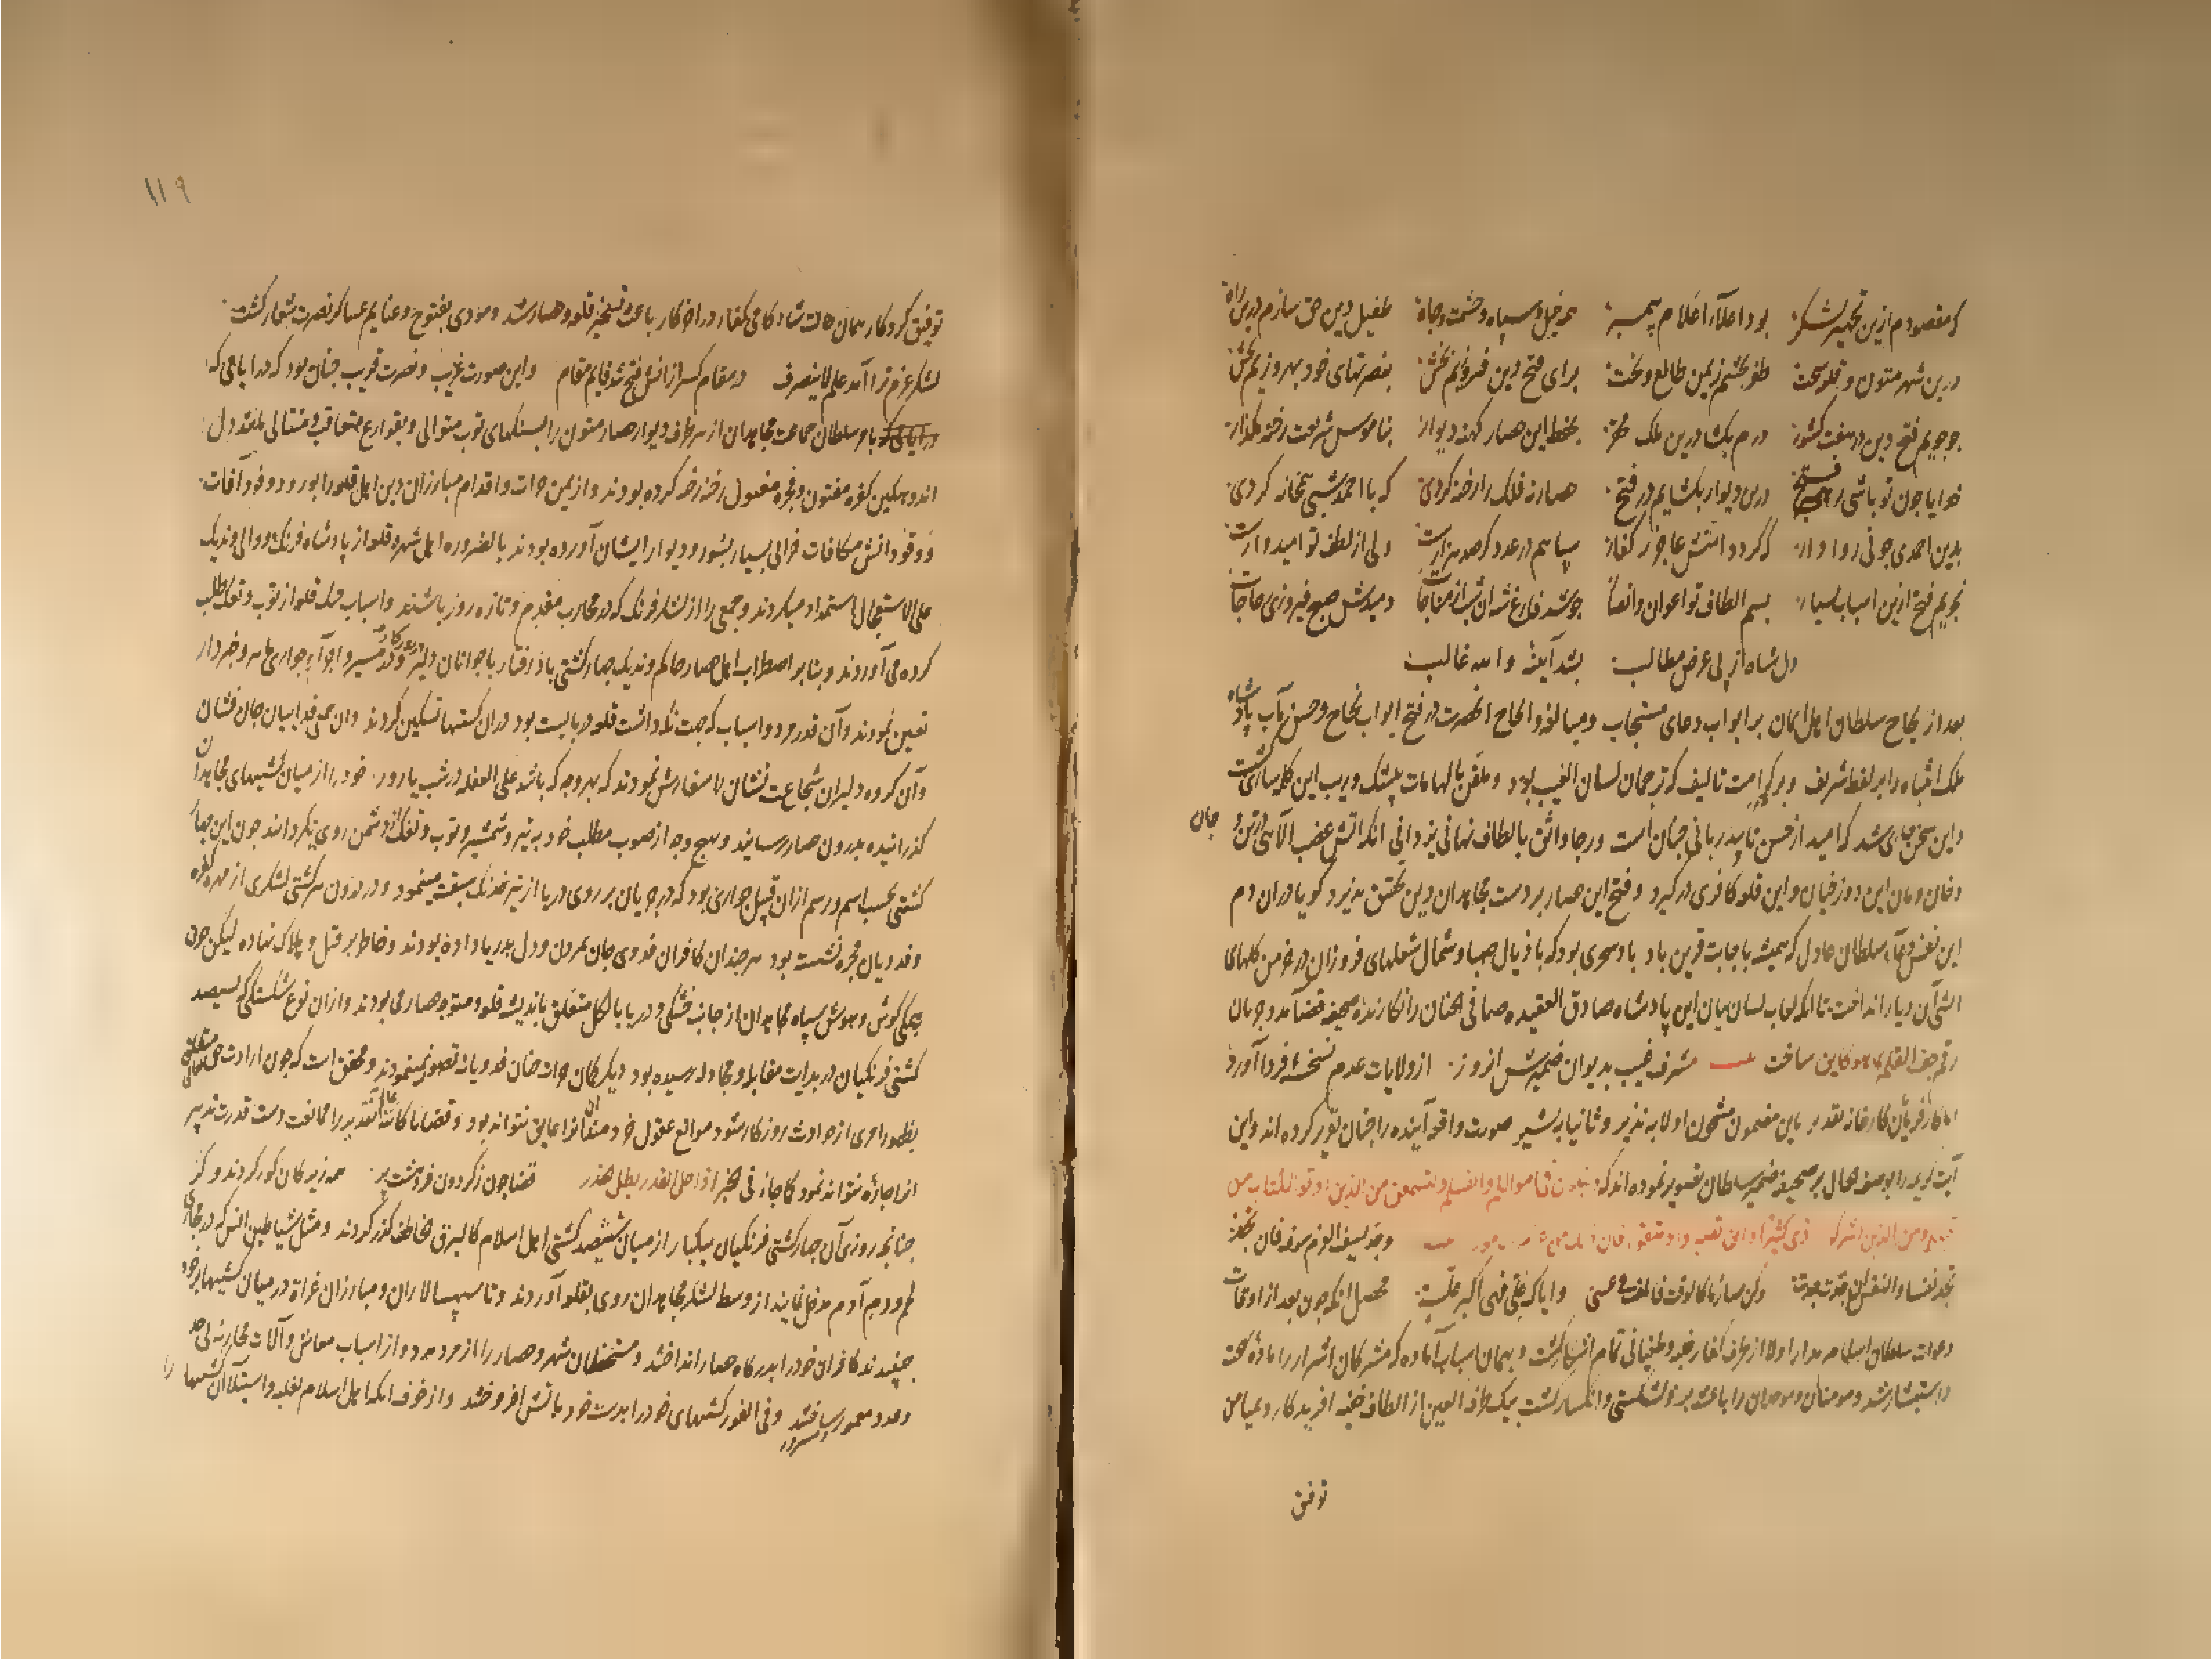 که مقصودم ازین تجهیز لشکر بود اعلاء اعلام پیمبر همه خیل و سپاه و حشمت و جاه طفیل دین حق سازم درین راه
درین شهر متون و قلعه سخت ظفر بخشم زیمن طالع و بخت برای فتح دین فیروزیم بخش بنصرتهای خود بهروزیم بخش
چو جویم فتح دین در هفت کشور درم بکشا درین ملک بحفظ این حصار کهنه دیوار بناموس شریعت رخنه مگذار
خدایا چون تو باشی درین دیوار بکشایم در فتح حصار نه فلک را رخنه کردی که با احمد شبی کردی
بدین احمدی چونی روا دار که گردد امتش عاجز ز کفار سپاهم در عدد گر صد هزارست ولی از لطف تو امیدوارست
نجویم فتح ازین اسباب بسیار بسم الطاف تو اعوان و انصار چو شد فارغ شه آن شب از مناجات دمیدش صبح فیروزی حاجات
دل شاه از پی عرض مطالب بشد آیة والله غالب
بعد از نجاح سلطان اهل ایمان بر ابواب دعای مستجاب و مبالغه و الحاح آنحضرت در فتح ابواب نجاح و حسن مآب پادشاه
ملک انتباه را بر لفظ شریف و بر کرامت تالیف که ترجمان لسان الغیب بود و ملقن بالهامات بیشک و ریب این کلمه ساری گشت
و این سخن جاری شد که امید از حسن تایید ربانی چنان است و رجا واثق بالطاف نهانی یزدانی آنکه آتش غضب الاهی در تن و جان
و خان و مان این دوزخیان و این قلعه کافری در گیرد و فتح این حصار بر دست مجاهدان دین تحقق پذیرد گویا در ان دم
این نفس دعاء سلطان عادل که همیشه باجابت قرین باد باد سحری بود که باذیال صبا و شمال شعلهای فروزان در خرمن کلهای
آتشی آن دیار انداخت تا آنکه لعاب لسان بیان این پادشاه صادق العقیده صافی الجنان را نگارنده صحیفه قضا مد و جریان
رقم جف القلم بما هو کاین ساخت مشرف غیب بدیوان ضمیرش آن روز از ولایات عدم نسخه فردا آورد
کارخانه تقدیر باین مضمون مشحون اولا به نذیر و ثانیا به بشیر صورت واقعه آینده را چنان تقریر کرده اند و این
آیت کریمه را بوصف حال بر صحیفه ضمیر سلطان تصویر نموده اند که لتبلون فی اموالکم و انفسکم و لتسمعن من الذین اوتوا الکتاب من
قبلکم و من الذین اشرکوا اذی کثیرا و ان تصبروا و تتقوا فان ذلک من عزم الامور
محصل آنکه چون بعد از اوقات
دعوات سلطان اسلام مدار اولا از طرف کفار غلبه و طغیانی تمام آشکار گشت و بهمان اسباب آماده که مشرکان اشرار را ماده
استبشار شد و مومنان و موحدان را باعث بر دلشکستی و انکسار گشت بیک طرفة العین از الطاف خفیه آفریدکار و
توفیق
۱۱۹
توفیق کردکار همان حالت شادکامی کفار در آخر کار باعث تسخیر قلعه و حصار شد و مودی بفتوح و غنایم عساکر نصرت شعار گشت
لشکر عزم ترا آمد علم لا ینصرف در مقام کسر ازان نیل فتح شد قایم مقام و این صورت غریب و نصرت قریب چنان بود که در ایامی که
بامر سلطان جماعت مجاهدان از هر طرف دیوار حصار متون را بسنگهای توپ متوالی و بقوارع متعاقب و متتالی مانند دل
اندوهگین کفره مفتون و فجره مغبون رخنه رخنه کرده بودند و از یمن جرات و اقدام مبارزان دین اهل قلعه را بورود وفود آفات
و وقود آتش مکافات خرابی بسیار بسور و دیوار ایشان آورده بودند بالضروره اهل شهر و قلعه از پادشاه فرنک و والی وندیک
علی الاستعجال استمداد میکردند و جمعی را از لشکر فرنک که در محارب مقدم و تازه روز باشند و اسباب جنک قلعه از توپ و تفک طلب
کرده می آوردند و بنا بر اضطراب اهل حصار حاکم وندیک چهار کشتی باد رفتار با جوانان دلیر و در مسیر و اجراء جواری ماهر و خبردار
تعیین نمودند و آن قدر مرد و اسباب که جهت نگه داشت قلعه در بایست بود دران کشتیها تسکین کردند و آن جمع فداییان جان فشان
و آن گروه دلیران شجاعت نشان را سفارش نمودند که بهر وجه که باشد علی الغفله در شب یا روز خود را از میان کشتیهای مجاهدان
گذرانیده بدرون حصار رسانند و بهیچ وجه از صوب مطلب خود به تیر و شمشیر و توپ و تفک دشمن روی نگردانند چون این چهار
کشتی بحسب اسم و رسم ازان قبیل جواری بود که در جریان بر روی دریا از تیر خدنک سبقت مینمود و در درون هر کشتی لشکری از مهره کفره
و فدویان فجره نشسته بود هر چند آن کافران فدوی جان بمردن و دل بدریا داده بودند و خاطر بر قتل و هلاک نهاده لیکن چون
همکی گوش و هوش سپاه مجاهدان از جانب خشکی و دریا بالکل متعلق باندیشه قلعه و متوجه حصار می بودند و ازان نوع شکستگی که سیصد
کشتی فرنکیان در بدایت مقابله و مجادله رسیده بود دیگر گمان جرات چنان فدویان تصور نمینمودند و محقق است که چون ارادت حق
بظهور امری از حوادث روزگار شود موانع عقول خرد منشان انرا عایق نتواند بود و قضایا کائنات تقدیر را ممانعت دست قدرت تدبیر
اندازه نتواند نمود کما جاء فی الخبر اذا حل القدر بطل الحذر قضا چون ز گردون فرو هشت پر همه زیرکان کور گردند و کر
چنانچه روزی آن چهار کشتی فرنکیان بیکبار از میان ششصد کشتی اهل اسلام کالبرق الخاطف گذر کردند و مثل شیاطین انس که در مجاری
لحم و دم آدم مدخل نمایند از وسط لشکر مجاهدان روی بقلعه آوردند و تا سپهسالاران و مبارزان غزاة در میان کشتیها بر خود
جنبیدند کافران خود را بدرگاه حصار انداختند و مستحفظان شهر و حصار را از مرد و مدد و از اسباب معاش و آلات محاربه بی حد
و عدد معمور ساختند و فی الفور کشتیهای خود را بدست خود بآتش افروختند و از خوف آنکه اهل اسلام بغلبه و استیلا آن کشتیها را